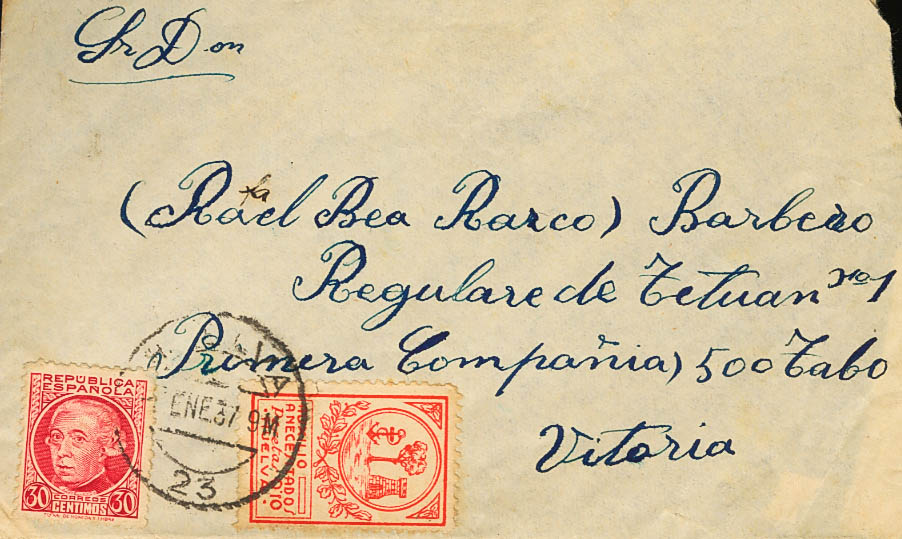 Sr Don
(Rafael Bea Razco) Barbero
Regulare de Tetuan no 1
Promera Compañia) 500 Tabo
Vitoria
REPUBLICA
ESPAÑOLA
30 CORREOS 30
CENTIMOS
ENE 37 9M
23
10
HUELVA.